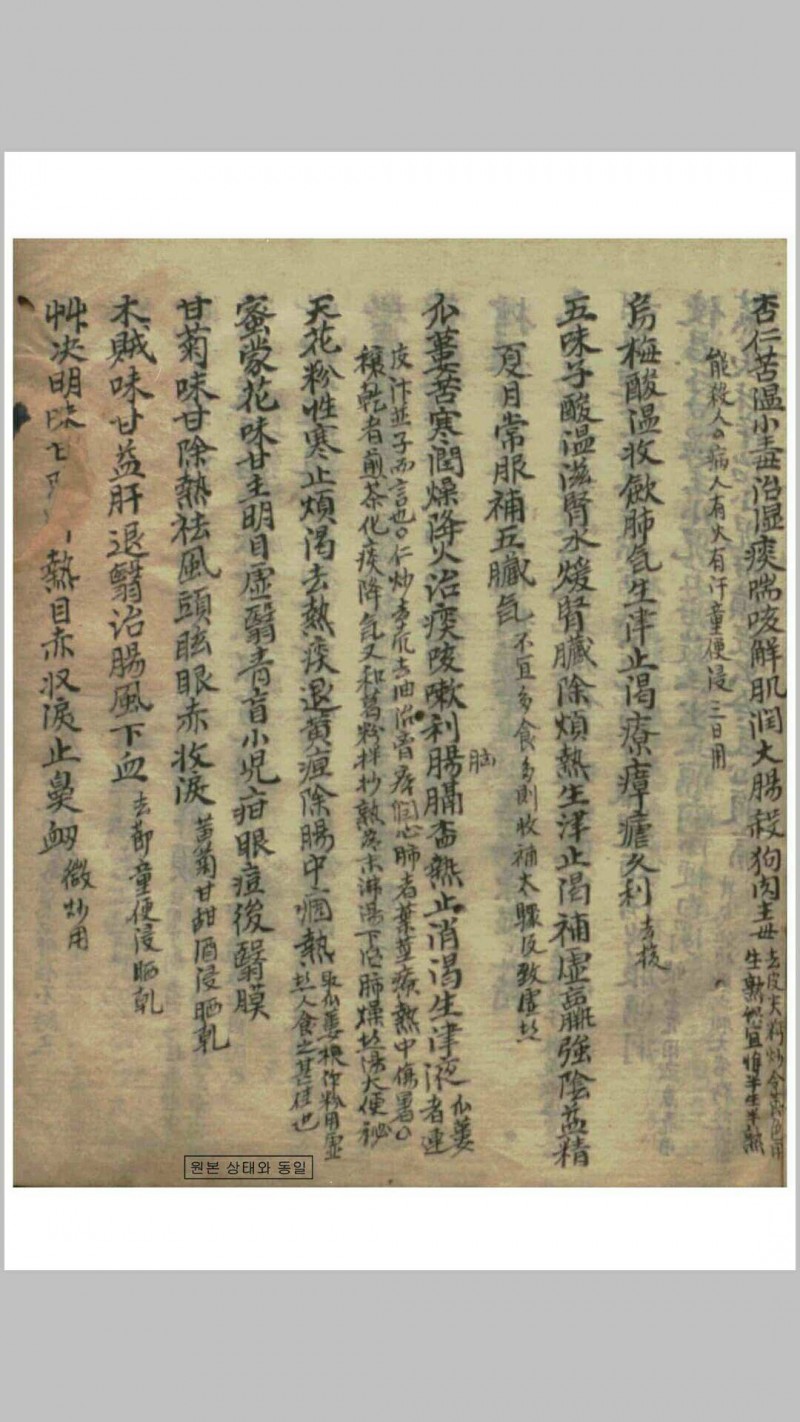 杏仁苦温小毒治湿痰喘咳解肌润大腸殺狗肉毒 去皮尖
生熟
能殺人○病人有火有汗童便浸三日用
烏梅酸温收斂肺气生津止渴療瘴瘧久利 去核
五味子酸温滋腎水煖腎臟除煩熱生津止渴補虚羸強陰益精
夏月常服補五臟气 不宜多食多則收補太驟反致虚
瓜蔞苦寒潤燥降火治痰咳嗽利腸膈 熱止消渴生津液 瓜蔞
者連
皮汁並子而言也○仁炒去 去油治 心肺者葉莖療熱中傷暑○
穰乾者煎茶化痰降气又和葛粉拌抄熟為末沸湯下治肺燥 大便秘
天花粉性寒止煩渴去熱痰退黄疸除腸中痼熱
人食之甚佳也
蜜蒙花味甘主明目虚翳青盲小児疳眼痘後翳膜
甘菊味甘除熱祛風頭眩眼赤收淚 黄菊甘甜酒浸晒乾
木賊味甘益肝退翳治腸風下血 去節童便浸晒乾
艸决明味 熱目赤収淚止鼻衂 微炒用
원본 상태와 동일